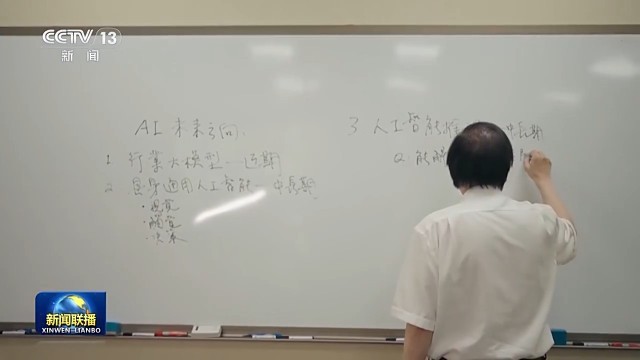 CCTV 13
新闻
AI 未来方向
1 行业大模型—近期
2 具身通用人工智能—中长期
·视觉
·触觉
·决策
3 人工智能 中长期
新闻联播
XINWEN-LIANBO